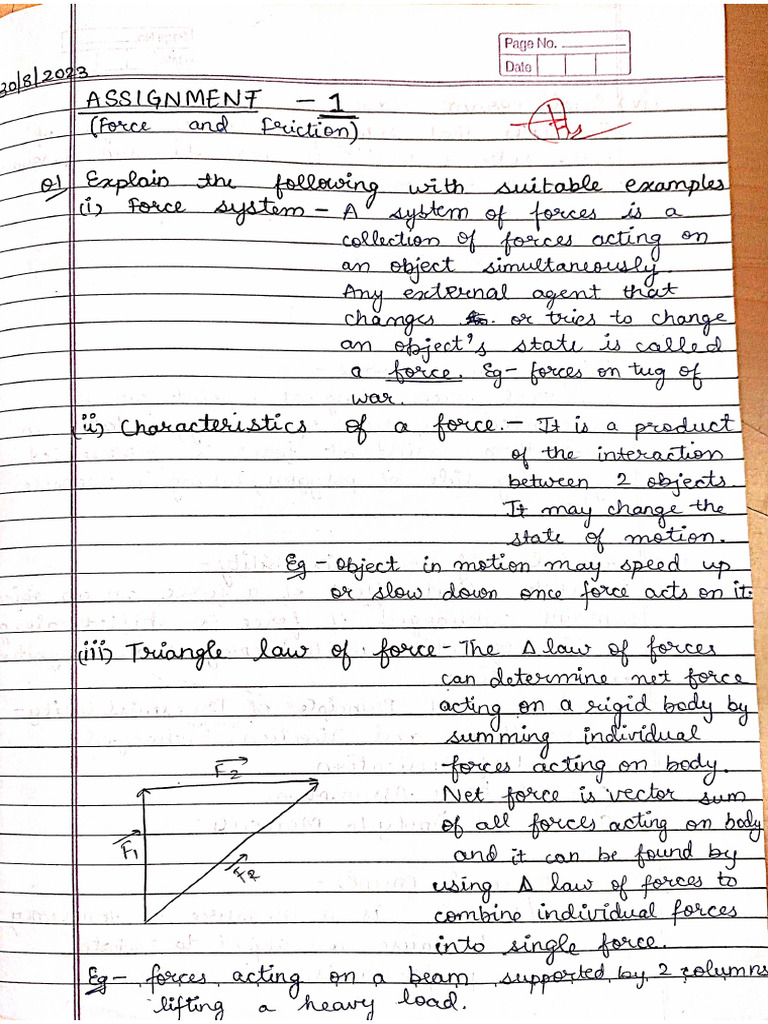 Page No.
Date
20/8/2023
ASSIGNMENT - 1
(Force and Friction)
Q1 Explain the following with suitable examples
(i) Force system - A system of forces is a
collection of forces acting on
an object simultaneously.
Any external agent that
changes or tries to change
an object's state is called
a force. Eg - forces on tug of
war.
(ii) Characteristics of a force. - It is a product
of the interaction
between 2 objects.
It may change the
state of motion.
Eg - Object in motion may speed up
or slow down once force acts on it.
(iii) Triangle law of force - The Δ law of forces
can determine net force
acting on a rigid body by
summing individual
forces acting on body.
Net force is vector sum
of all forces acting on body
and it can be found by
using Δ law of forces to
combine individual forces
into single force.
F2
F1
FR
Eg - forces acting on a beam supported by 2 columns
lifting a heavy load.